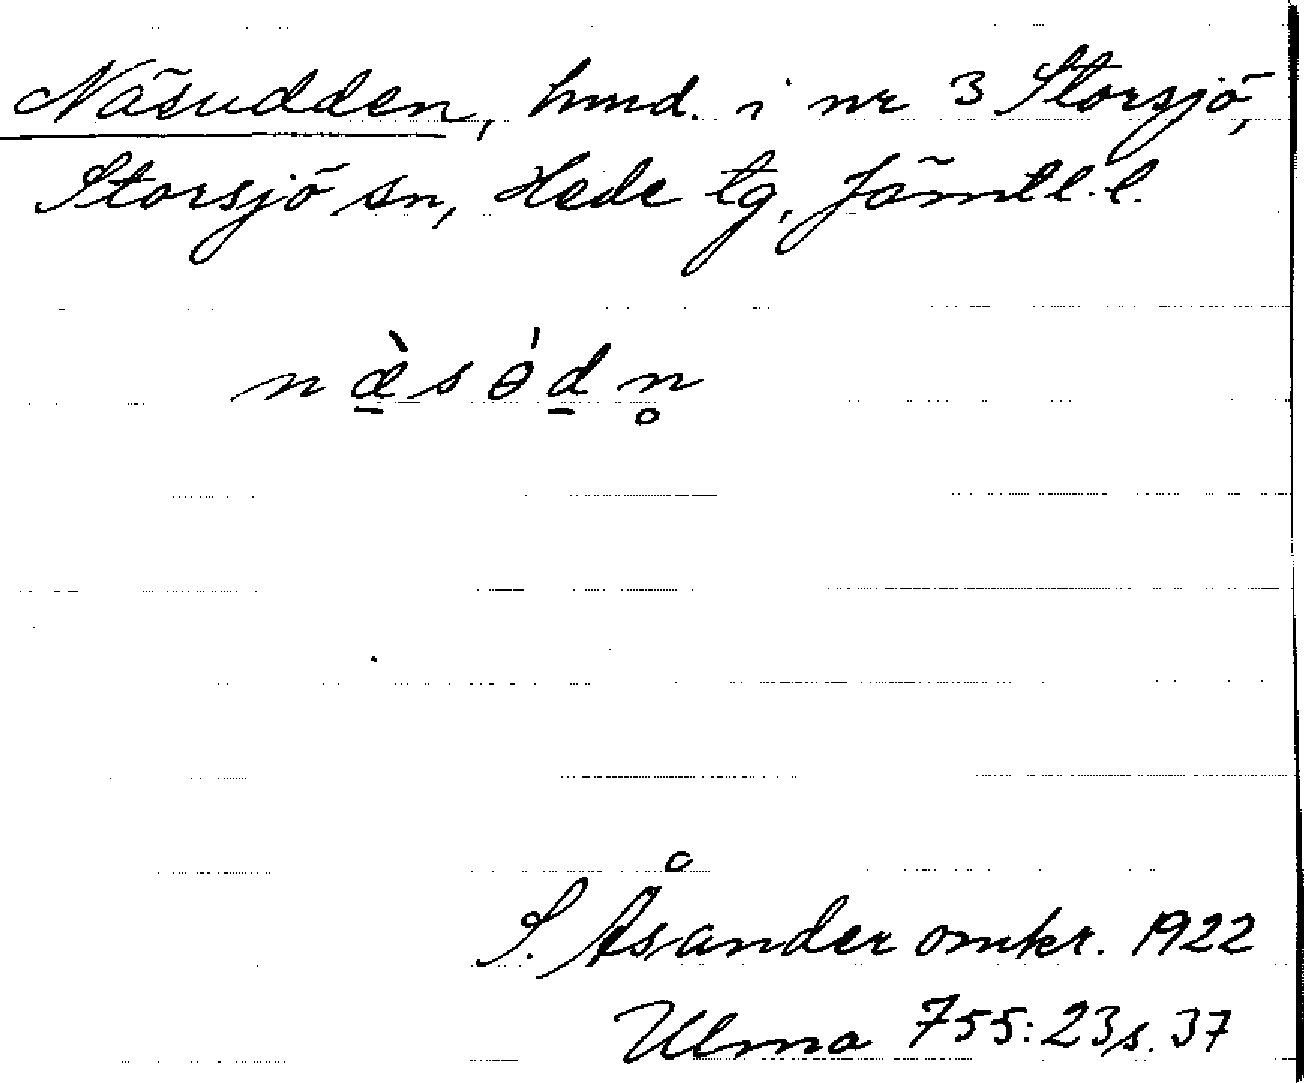 Näsudden, hmd. i nr 3 Storsjö,
Storsjö sn, Hede tg, Jämtl. l.
næ̠̀sɵ́d̠n̥
S. Åsander omkr. 1922
Ulma 755:23, s. 37